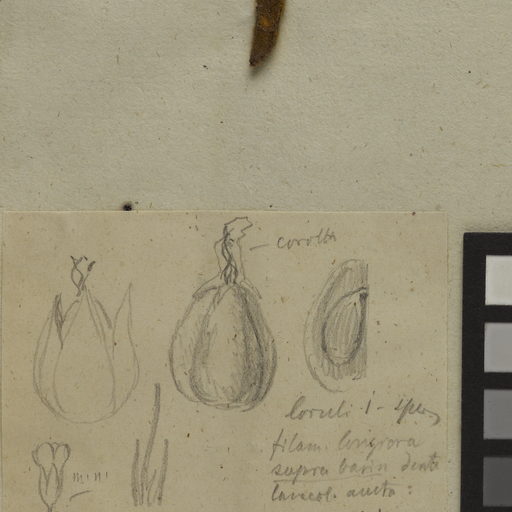 corolla
loculi 1 - sper
filam. longiora
supra basin dente
lanceol. aucto :